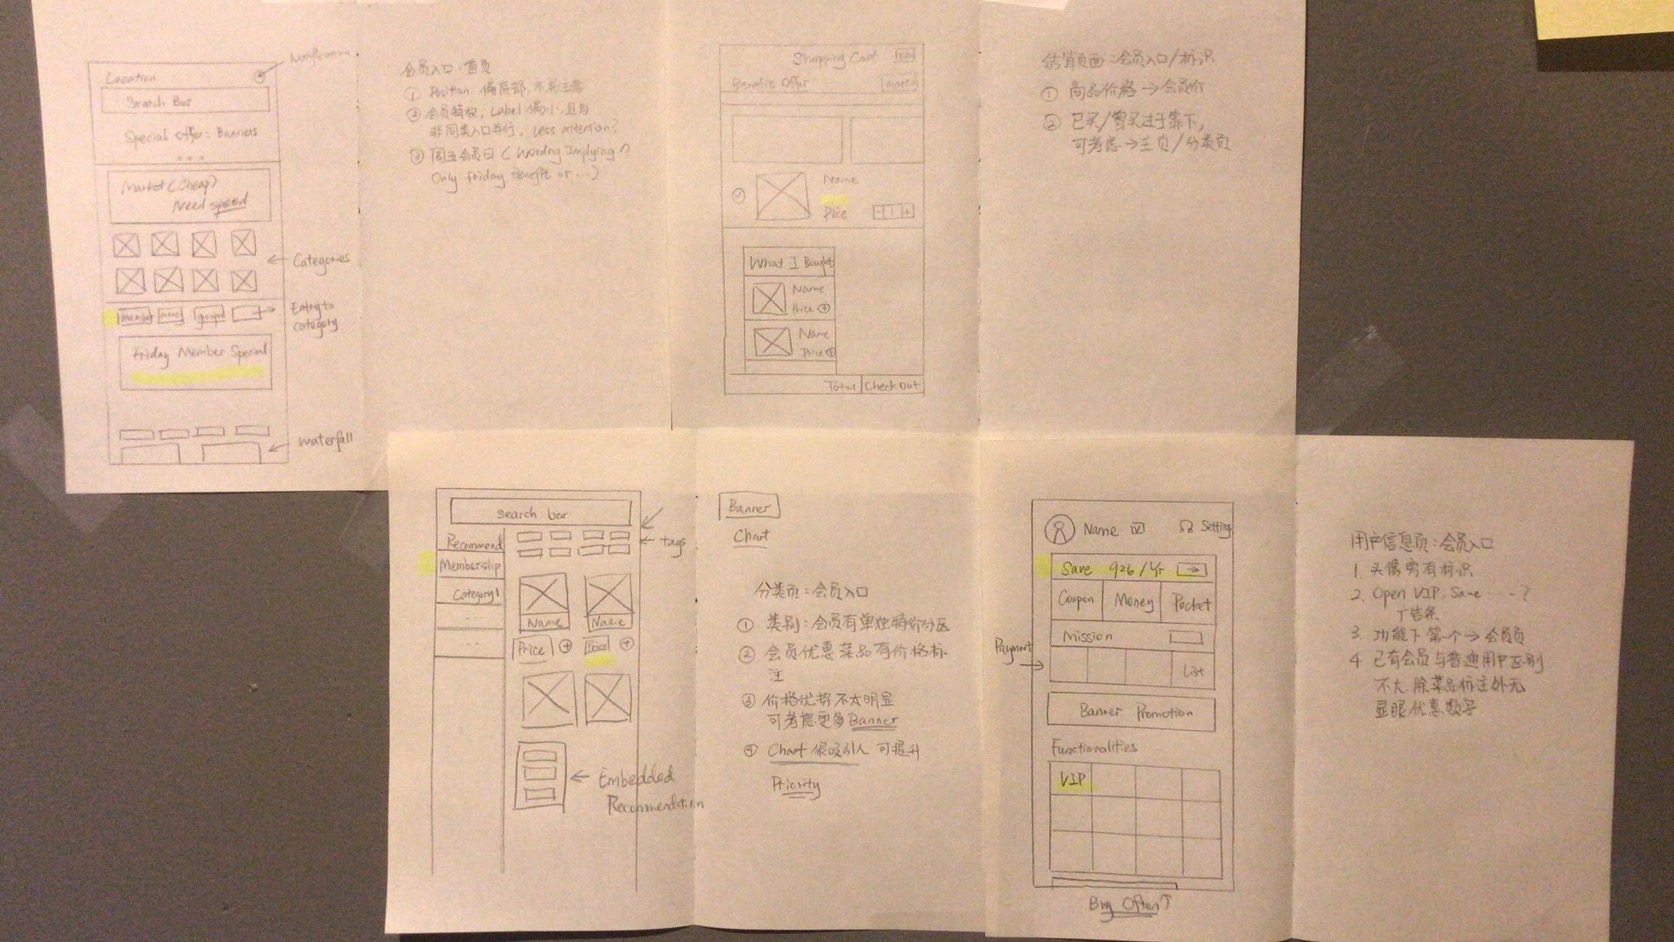 Location
Notification
Search Bar
Special Offer: Banners
Market (Cheap)
Need speed
Categories
member
group
Entry to
category
Friday Member Special
Waterfall
会员入口:首页
① Position 偏底部,不易注意
② 会员特权, Label 偏小,且与
非同类入口并行, Less attention?
③ 周五会员日 ( Wording Implying
Only friday benefit or ...)
Shopping Cart
Benefit Offer
Name
Price
- 1 +
What I Bought
Name
Price
Name
Price
Total
Check Out
结算页面:会员入口/标识
① 商品价格→会员价
② 已买/曾买过于靠下,
可考虑→主页/分类页
Search bar
Recommend
Membership
Category1
tags
Name
Name
Price
Embedded
Recommendation
Banner
Chart
分类页:会员入口
① 类别:会员有单独特价分区
② 会员优惠菜品有价格标
注
③ 价格优势不太明显
可考虑更多Banner
④ Chart 很吸引人 可提升
Priority
Name
Setting
Save 926/Yr
Coupon
Money
Pocket
Mission
Payment
List
Banner Promotion
Functionalities
VIP
Buy Often↑
用户信息页:会员入口
1. 头像旁有标识
2. Open VIP, Save ----?
广告条
3. 功能下第一个→会员页
4. 已有会员与普通用户区别
不大 除菜品标注外无
显眼优惠数字